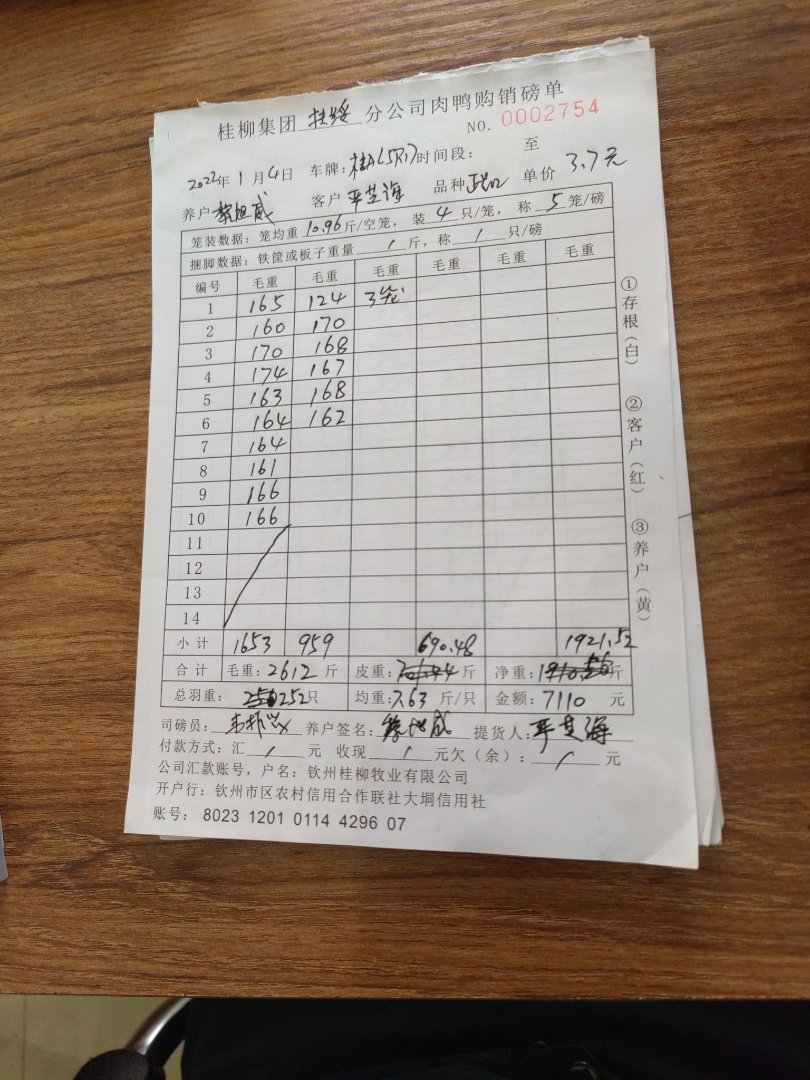 桂柳集团 扶绥 分公司肉鸭购销磅单
NO. 0002754
2022年1月4日 车牌: 时间段: 至
养户 客户 品种 单价 3.7元
笼装数据: 笼均重 10.96 斤/空笼, 装 4 只/笼, 称 5 笼/磅
捆脚数据: 铁筐或板子重量 / 斤, 称 / 只/磅
编号 毛重 毛重 毛重 毛重 毛重 毛重
1 165 124 3笼
2 160 170
3 170 168
4 174 167
5 163 168
6 164 162
7 164
8 161
9 166
10 166
11
12
13
14
小计 1653 959 690.48 1921.52
合计 毛重: 2612 斤 皮重: 斤 净重: 斤
总羽重: 252只 均重: 7.63 斤/只 金额: 7110 元
司磅员: 养户签名: 提货人:
付款方式: 汇 / 元 收现 / 元欠(余): / 元
公司汇款账号, 户名: 钦州桂柳牧业有限公司
开户行: 钦州市区农村信用合作联社大垌信用社
账号: 8023 1201 0114 4296 07
①存根(白)
②客户(红)
③养户(黄)